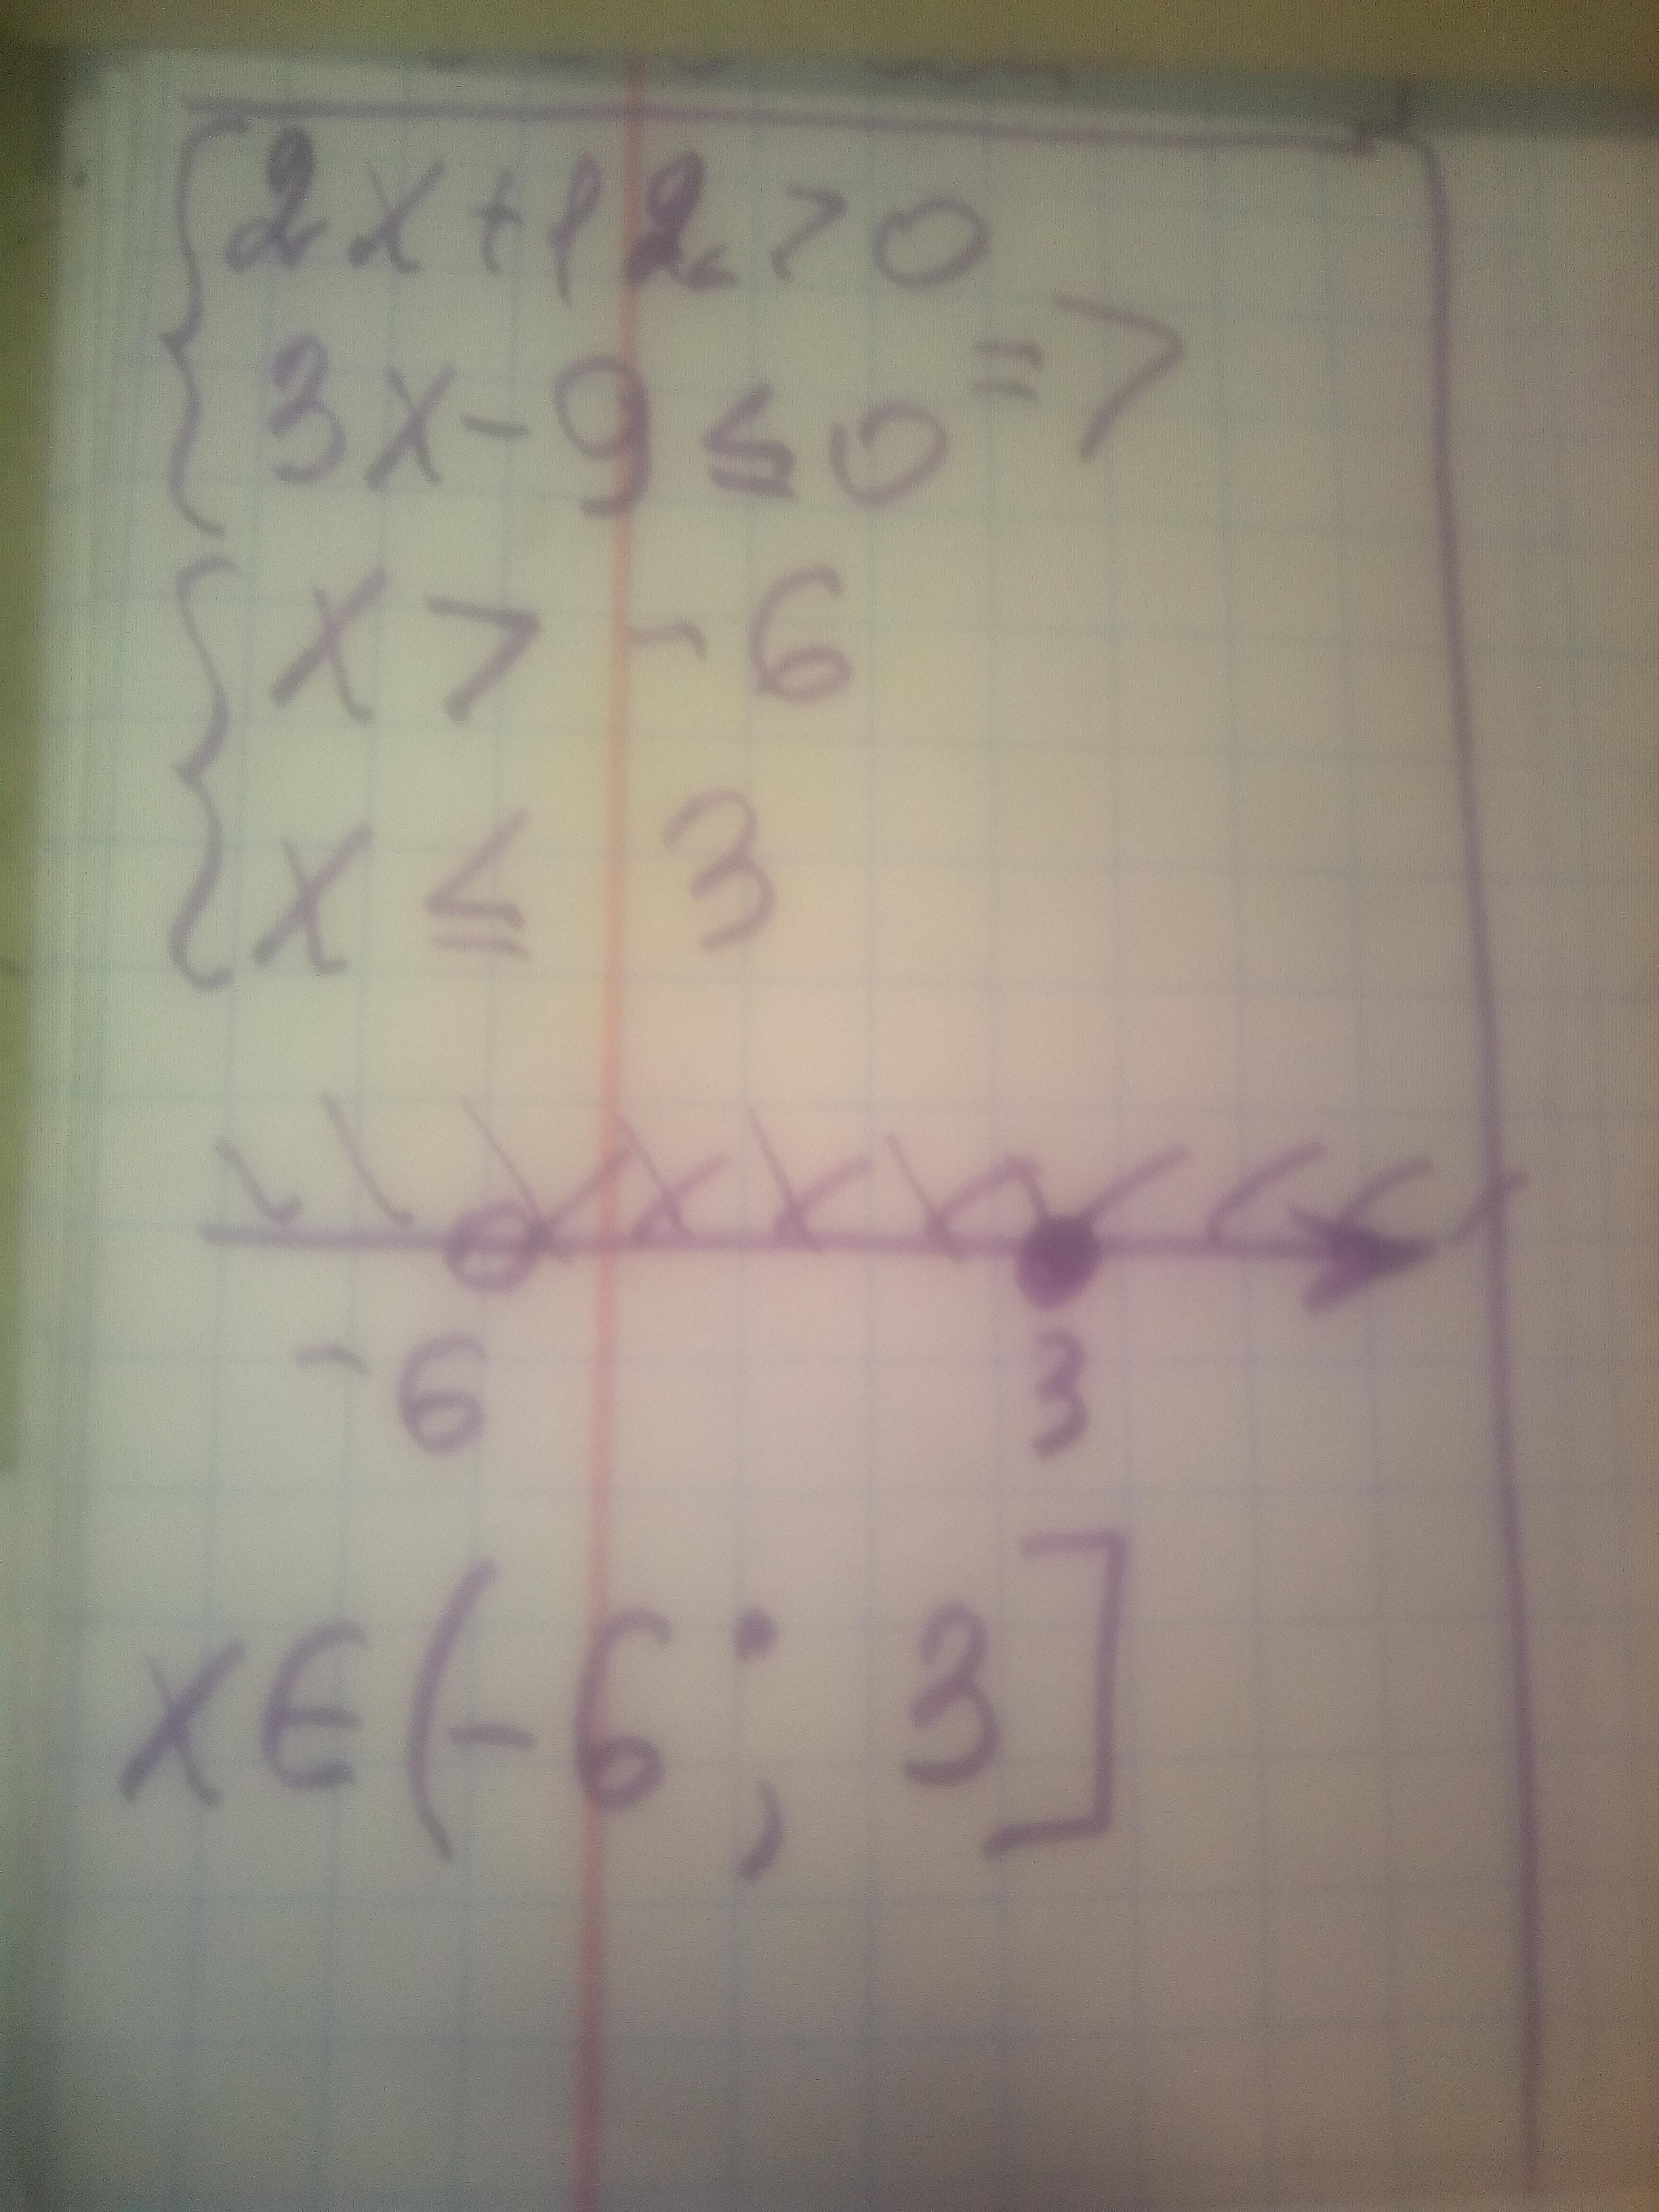 2x+12>0
3x-9≤0 =>
x > -6
x ≤ 3
-6 3
x∈(-6; 3]